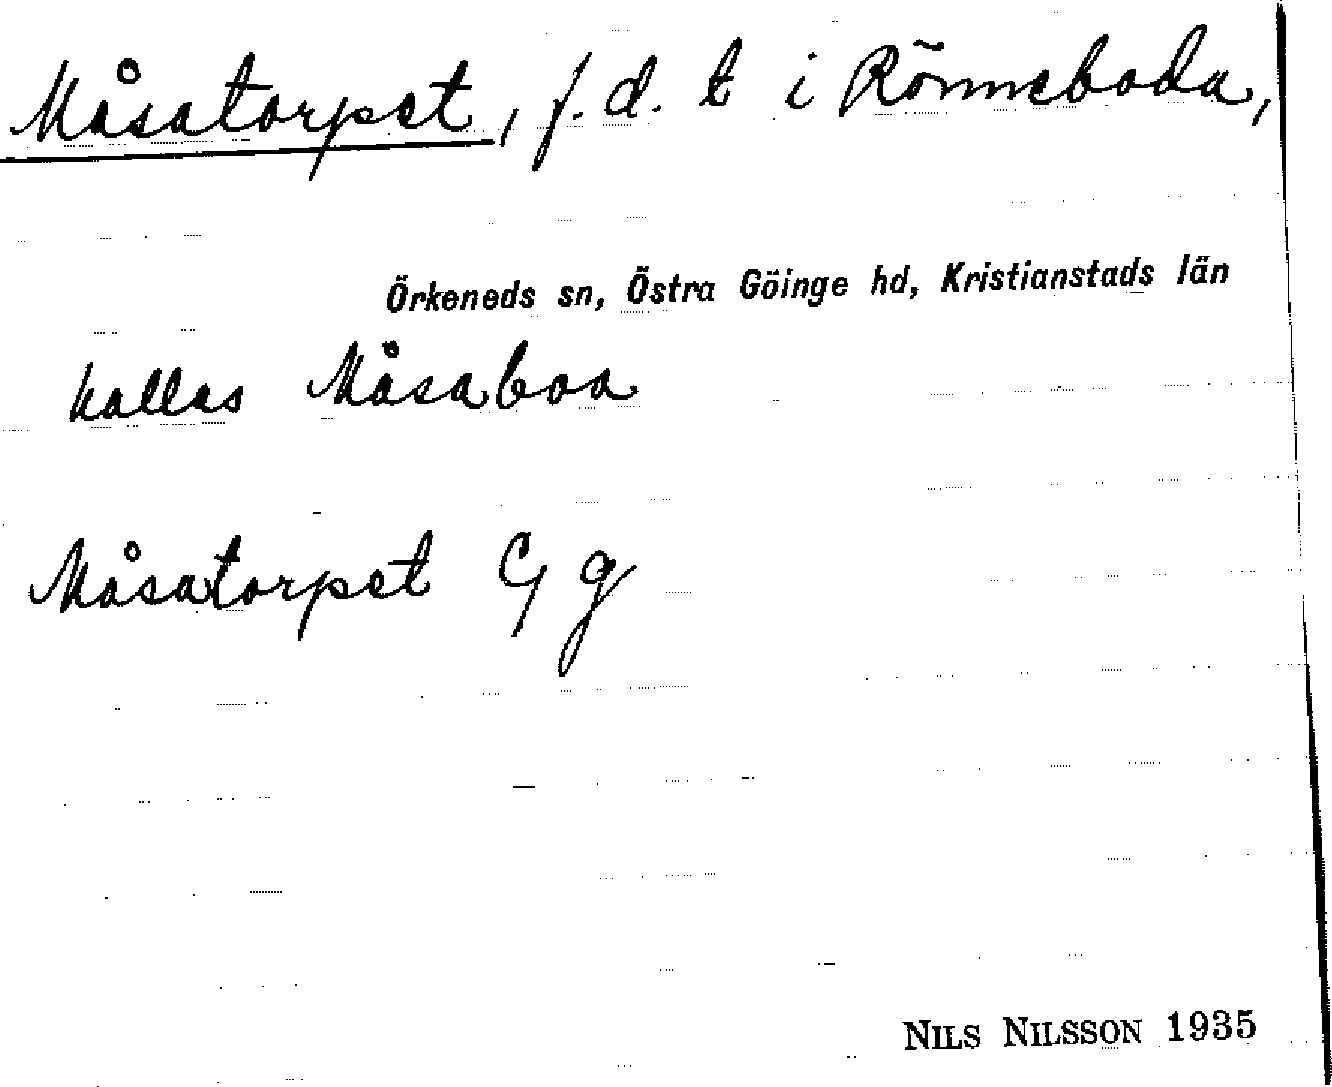 Måsatorpet, f.d. t i Rönneboda,
Örkeneds sn, Östra Göinge hd, Kristianstads län
kallas Måsaboa
Måsatorpet Gg
NILS NILSSON 1935